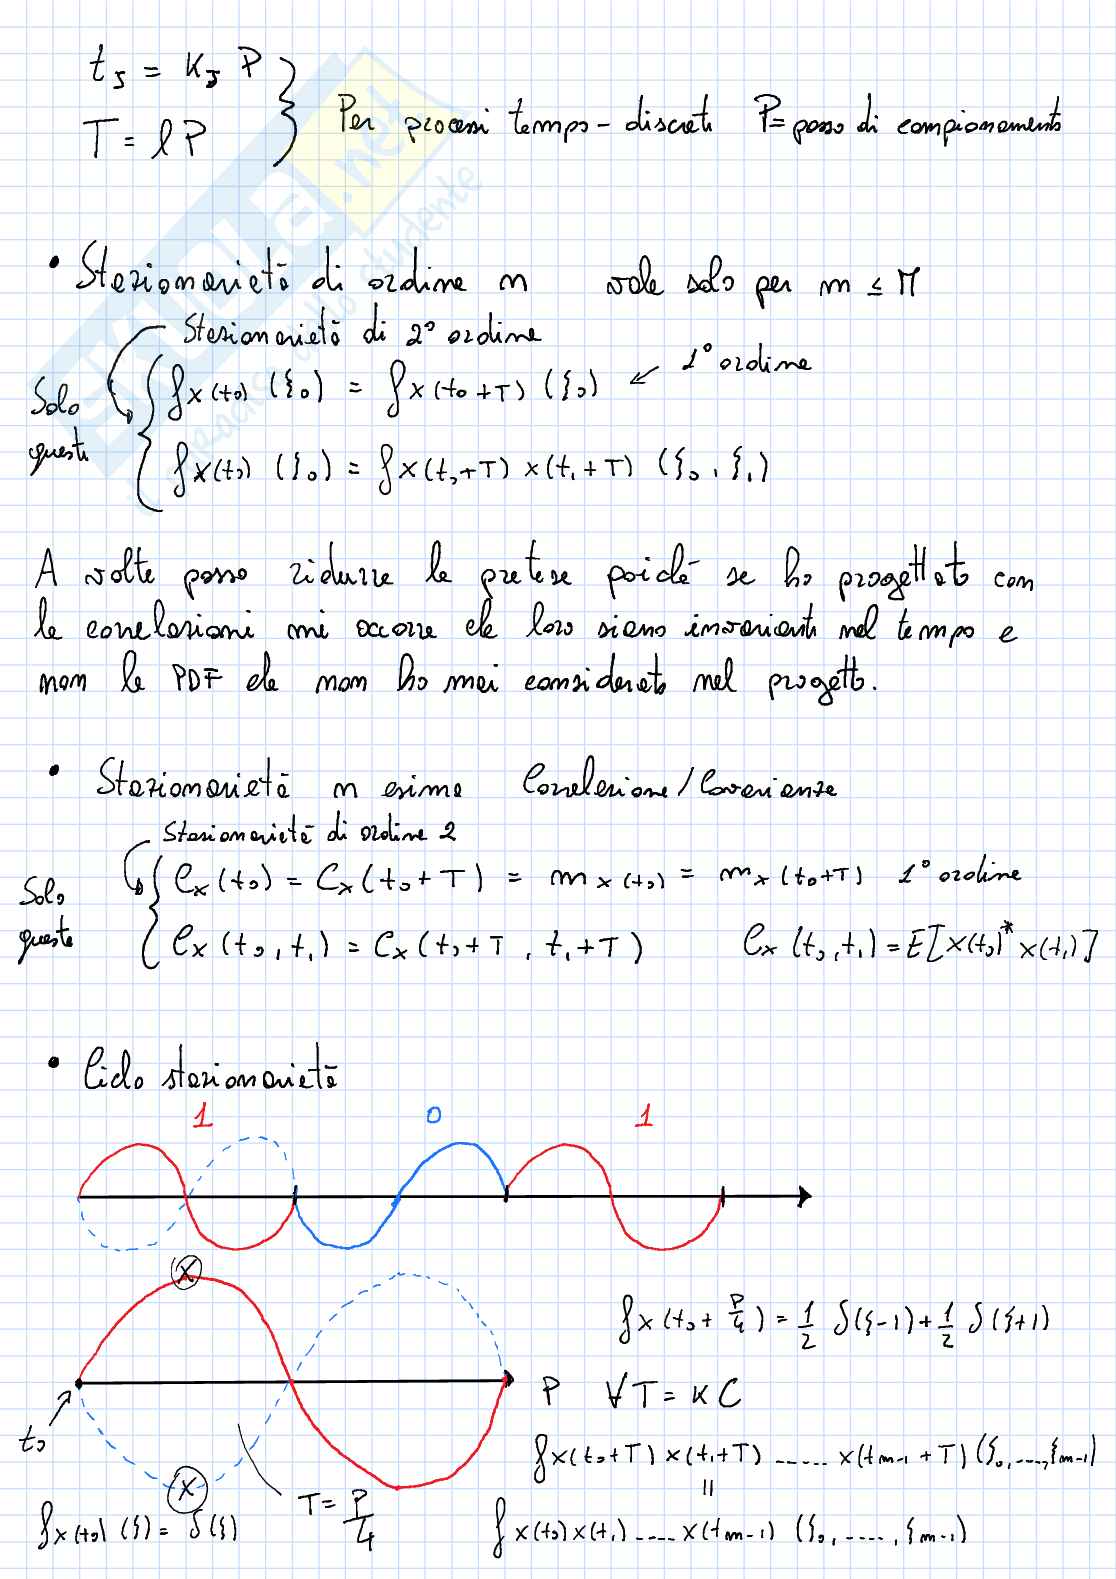 t_J = K_J P
T = l P
Per processi tempo-discreti P = passo di campionamento
• Stazionarietà di ordine M vale solo per m ≤ M
Stazionarietà di 2° ordine
Solo queste
f_{X(t_0)} (ξ_0) = f_{X(t_0+T)} (ξ_0) ↙ 1° ordine
f_{X(t_0)} (ξ_0) = f_{X(t_0+T) X(t_1+T)} (ξ_0, ξ_1)
A volte posso ridurre le pretese poiché se ho progettato con
le correlazioni mi occorre che loro siano invarianti nel tempo e
non le PDF che non ho mai considerato nel progetto.
• Stazionarietà n esima Correlazione/Covarianza
Stazionarietà di ordine 2
Solo queste
C_x(t_0) = C_x(t_0+T) = m_x(t_0) = m_x(t_0+T) 1° ordine
C_x(t_0, t_1) = C_x(t_0+T, t_1+T) C_x(t_0, t_1) = E[X(t_0)* X(t_1)]
• Ciclo stazionarietà
1 0 1
X
f_{X(t_0 + P/4)} = 1/2 δ(ξ-1) + 1/2 δ(ξ+1)
P ∀T = KC
t_0
f_{X(t_0+T) X(t_1+T) ...... X(t_{m-1}+T)} (ξ_0, ...., ξ_{m-1})
=
X
T = P/4
f_{X(t_0)} (ξ) = δ(ξ)
f_{X(t_0) X(t_1) ..... X(t_{m-1})} (ξ_0, ....., ξ_{m-1})